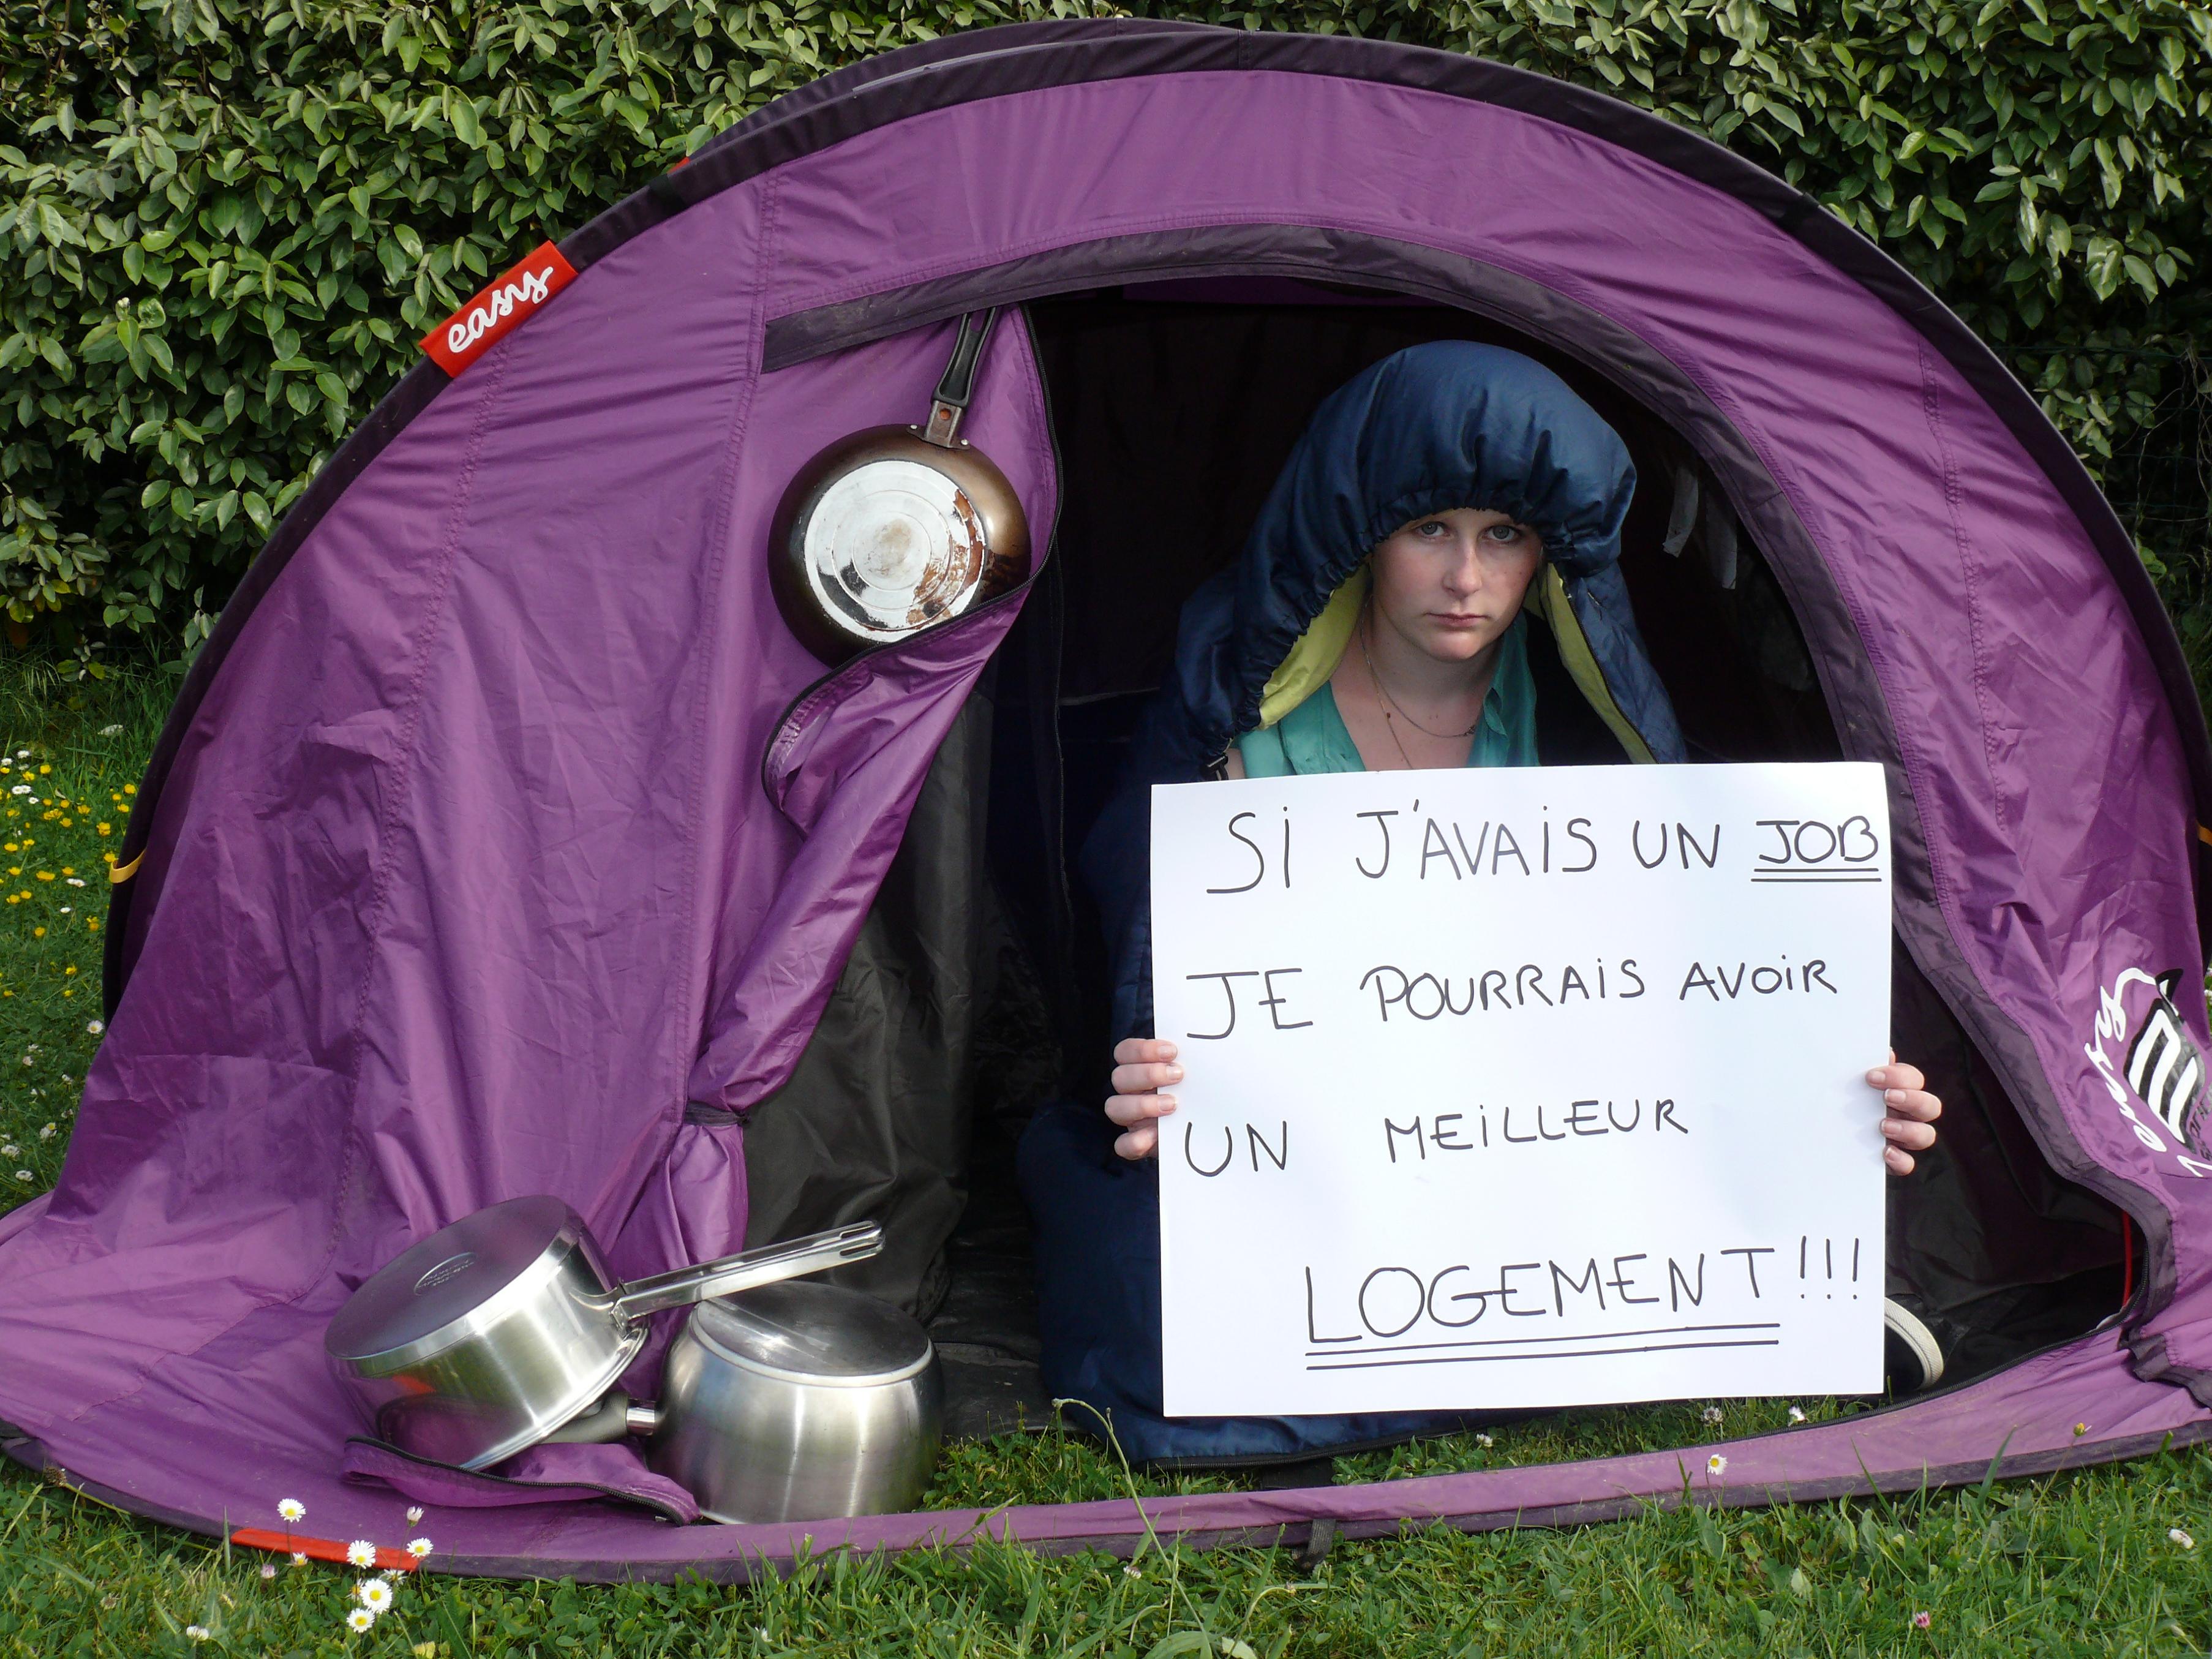 easy
SI J'AVAIS UN JOB
JE POURRAIS AVOIR
UN MEILLEUR
LOGEMENT !!!